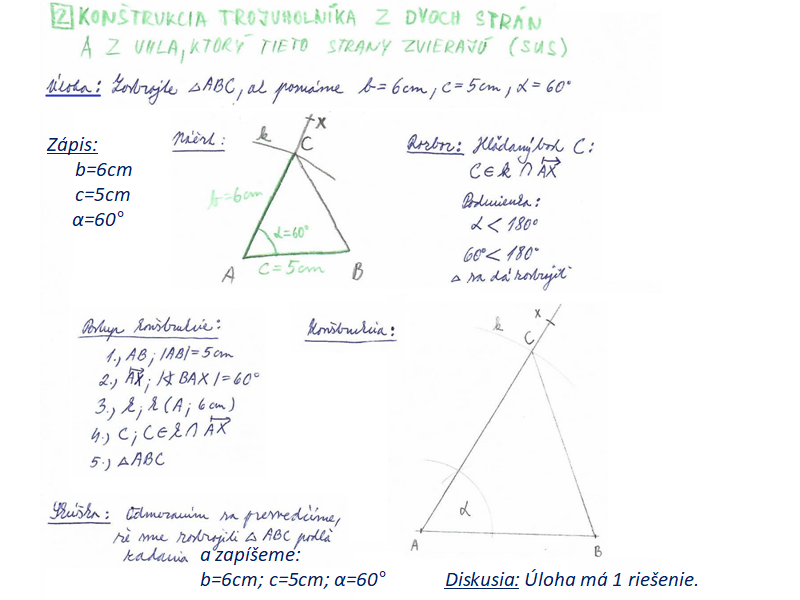 2 KONŠTRUKCIA TROJUHOLNÍKA Z DVOCH STRÁN
A Z UHLA, KTORÝ TIETO STRANY ZVIERAJÚ (SUS)
Úloha: Zostrojte △ABC, ak poznáme b=6cm, c=5cm, α=60°
Zápis:
b=6cm
c=5cm
α=60°
Náčrt:
k
X
C
b=6cm
α=60°
A
c=5cm
B
Rozbor: Hľadaný bod C:
C∈k ∩ ↔AX
Podmienka:
α < 180°
60° < 180°
△ sa dá zostrojiť
Postup konštrukcie:
1., AB; |AB|=5cm
2., →AX; |∢BAX|=60°
3., k; k(A; 6cm)
4., C; C∈k∩↔AX
5., △ABC
Konštrukcia:
X
k
C
α
A
B
Skúška: Odmeraním sa presvedčíme,
že sme zostrojili △ABC podľa
zadania a zapíšeme:
b=6cm; c=5cm; α=60°
Diskusia: Úloha má 1 riešenie.